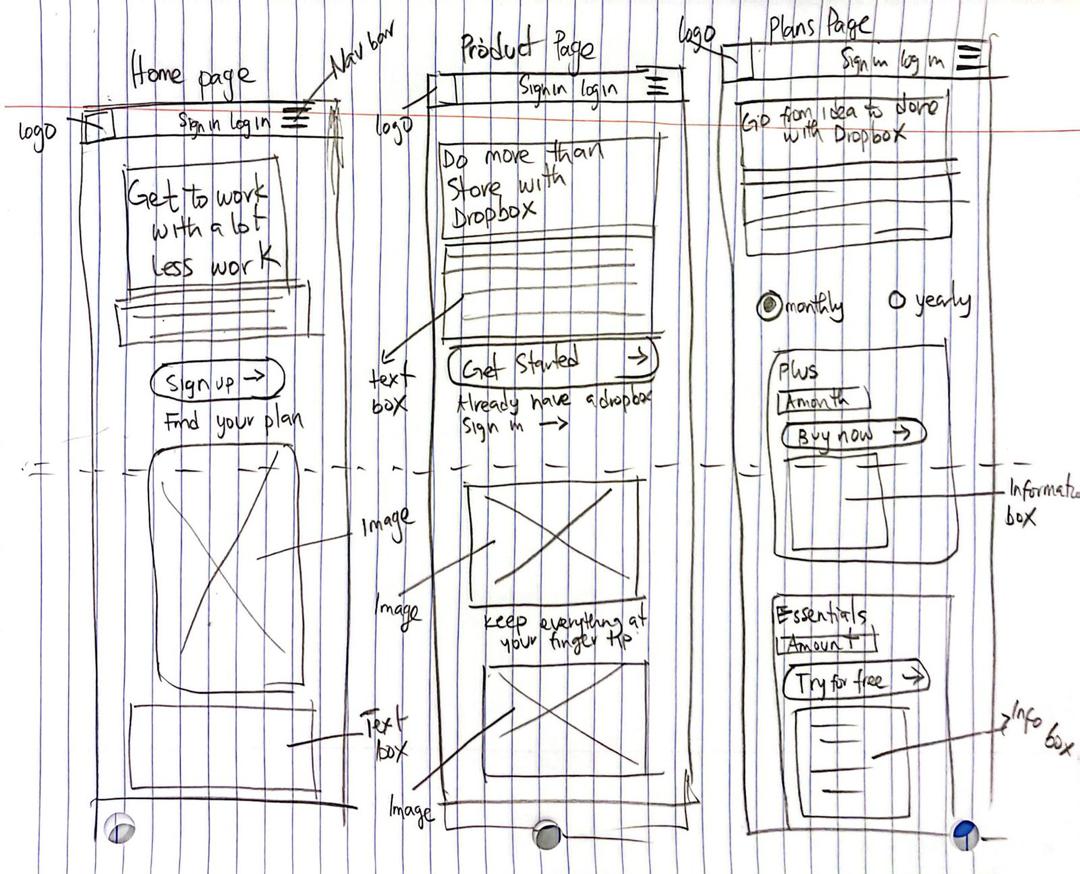 Home page
Nav bar
logo
Sign in log in
Get to work
with a lot
less work
Sign up →
Find your plan
Image
Text
box
Product Page
logo
Sign in login
Do more than
Store with
Dropbox
text
box
Get Started →
Already have a dropbox
Sign in →
Image
keep everything at
your finger tip
Image
Plans Page
logo
Sign in log in
Go from idea to done
with Dropbox
monthly
yearly
Plus
Amonth
Buy now →
Informatio
box
Essentials
Amount
Try for free →
Info
box